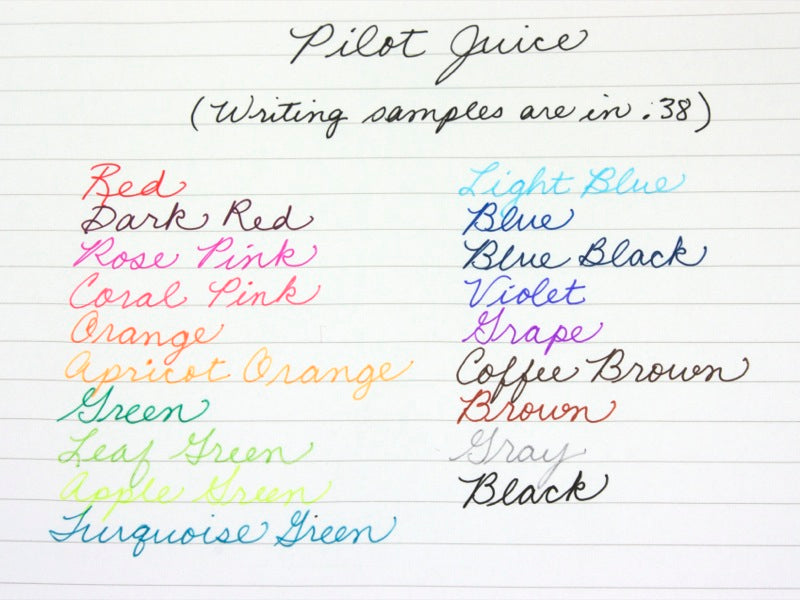 Pilot Juice
(Writing samples are in .38)
Red
Dark Red
Rose Pink
Coral Pink
Orange
Apricot Orange
Green
Leaf Green
Apple Green
Turquoise Green
Light Blue
Blue
Blue Black
Violet
Grape
Coffee Brown
Brown
Gray
Black